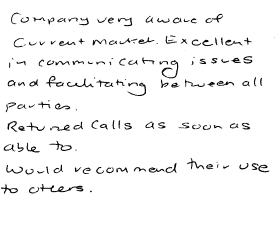 Company very aware of
Current market. Excellent
in communicating issues
and facilitating between all
parties.
Retuned calls as soon as
able to.
Would recommend their use
to others.